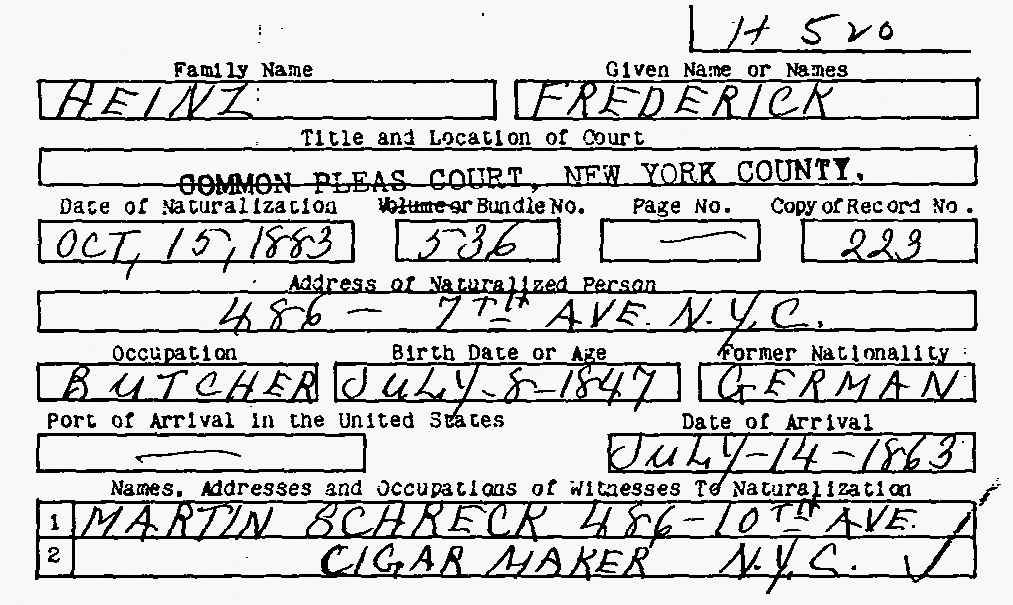 H 520
Family Name Given Name or Names
HEINZ FREDERICK
Title and Location of Court
COMMON PLEAS COURT, NEW YORK COUNTY.
Date of Naturalization Volume or Bundle No. Page No. Copy of Record No.
OCT, 15, 1883 536 — 223
Address of Naturalized Person
486 — 7TH AVE. N.Y.C.
Occupation Birth Date or Age Former Nationality
BUTCHER JULY-8-1847 GERMAN
Port of Arrival in the United States Date of Arrival
— JULY-14-1863
Names, Addresses and Occupations of Witnesses To Naturalization
1 MARTIN SCHRECK 486-10TH AVE.
2 CIGAR MAKER N.Y.C. ✓